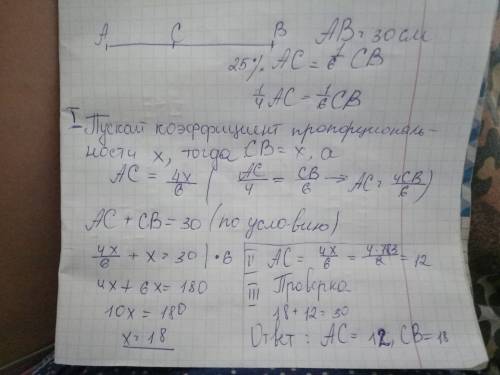 A C B AB = 30 см
25% AC = 1/6 CB
1/4 AC = 1/6 CB
I Пускай коэффициент пропорциональ-
ности x, тогда CB = x, а
AC = 4x/6 ( AC/4 = CB/6 → AC = 4CB/6 )
AC + CB = 30 (по условию)
4x/6 + x = 30 | · 6
4x + 6x = 180
10x = 180
x = 18
II AC = 4x/6 = = 12
III Проверка
18 + 12 = 30
Ответ: AC = 12, CB = 18